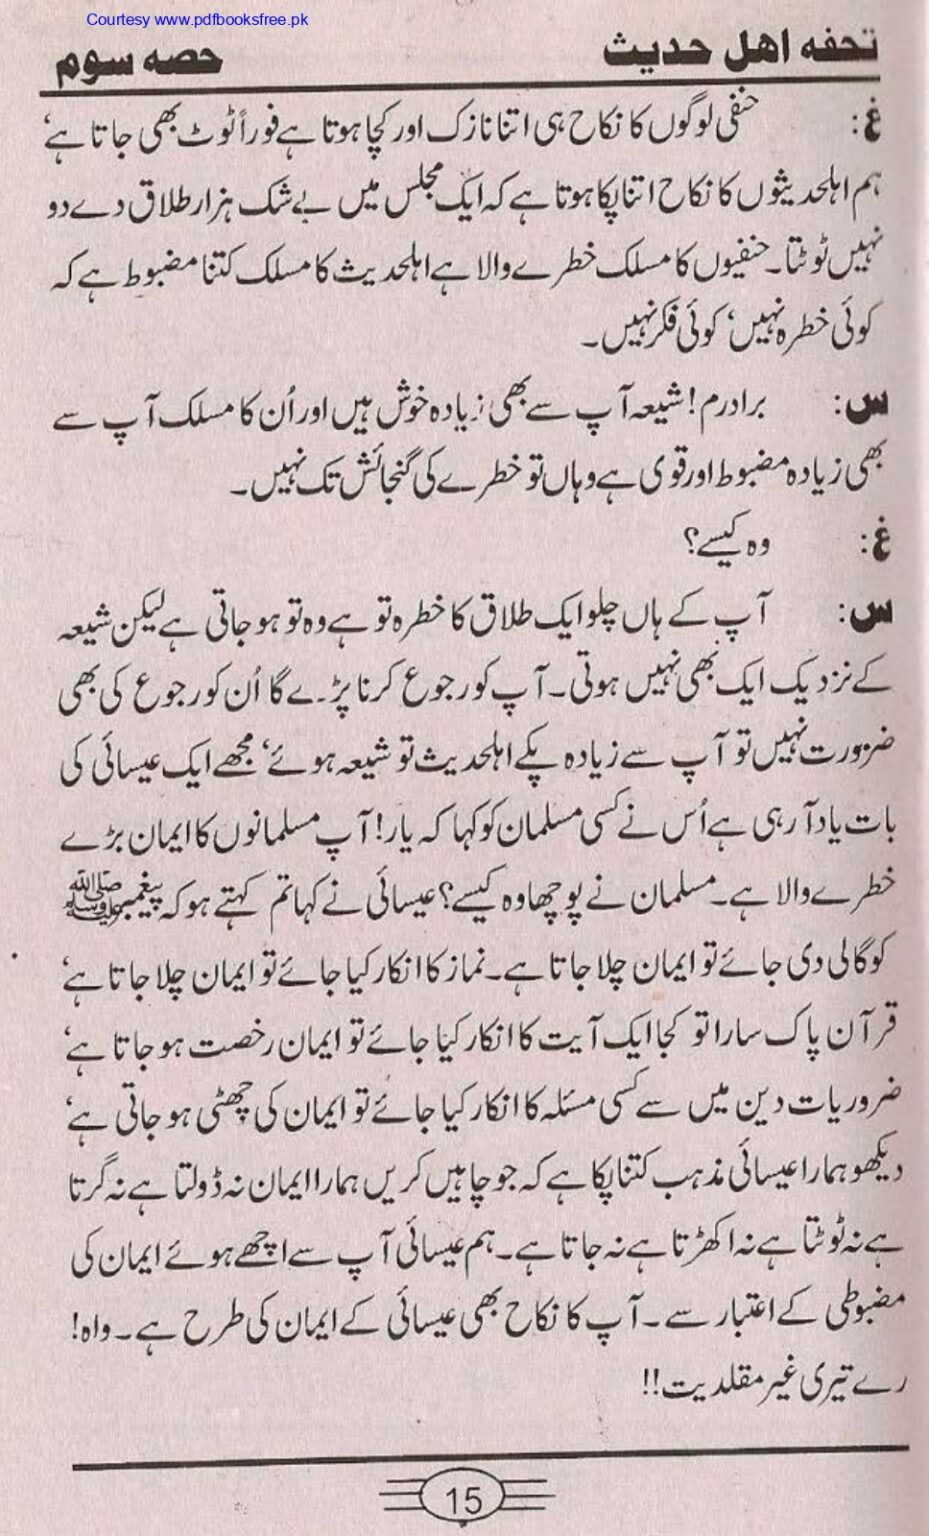 Courtesy www.pdfbooksfree.pk
تحفه اهل حدیث حصه سوم
غ: حنفی لوگوں کا نکاح ہی اتنا نازک اور کچا ہوتا ہے فوراً ٹوٹ بھی جاتا ہے‘
ہم اہلحدیثوں کا نکاح اتنا پکا ہوتا ہے کہ ایک مجلس میں بے شک ہزار طلاق دے دو
نہیں ٹوٹتا۔ حنفیوں کا مسلک خطرے والا ہے اہلحدیث کا مسلک کتنا مضبوط ہے کہ
کوئی خطرہ نہیں‘ کوئی فکر نہیں۔
س: برادرم! شیعہ آپ سے بھی زیادہ خوش ہیں اور اُن کا مسلک آپ سے
بھی زیادہ مضبوط اور قوی ہے وہاں تو خطرے کی گنجائش تک نہیں۔
غ: وہ کیسے؟
س: آپ کے ہاں چلو ایک طلاق کا خطرہ تو ہے وہ تو ہو جاتی ہے لیکن شیعہ
کے نزدیک ایک بھی نہیں ہوتی۔ آپ کو رجوع کرنا پڑے گا اُن کو رجوع کی بھی
ضرورت نہیں تو آپ سے زیادہ پکے اہلحدیث تو شیعہ ہوئے‘ مجھے ایک عیسائی کی
بات یاد آ رہی ہے اُس نے کسی مسلمان کو کہا کہ یار! آپ مسلمانوں کا ایمان بڑے
خطرے والا ہے۔ مسلمان نے پوچھا وہ کیسے؟ عیسائی نے کہا تم کہتے ہو کہ پیغمبر ﷺ
کو گالی دی جائے تو ایمان چلا جاتا ہے۔ نماز کا انکار کیا جائے تو ایمان چلا جاتا ہے‘
قرآن پاک سارا تو کجا ایک آیت کا انکار کیا جائے تو ایمان رخصت ہو جاتا ہے‘
ضروریات دین میں سے کسی مسئلہ کا انکار کیا جائے تو ایمان کی چھٹی ہو جاتی ہے‘
دیکھو ہمارا عیسائی مذہب کتنا پکا ہے کہ جو چاہیں کریں ہمارا ایمان نہ ڈولتا ہے نہ گرتا
ہے نہ ٹوٹتا ہے نہ اکھڑتا ہے نہ جاتا ہے۔ ہم عیسائی آپ سے اچھے ہوئے ایمان کی
مضبوطی کے اعتبار سے۔ آپ کا نکاح بھی عیسائی کے ایمان کی طرح ہے۔ واہ!
رے تیری غیر مقلدیت!!
15